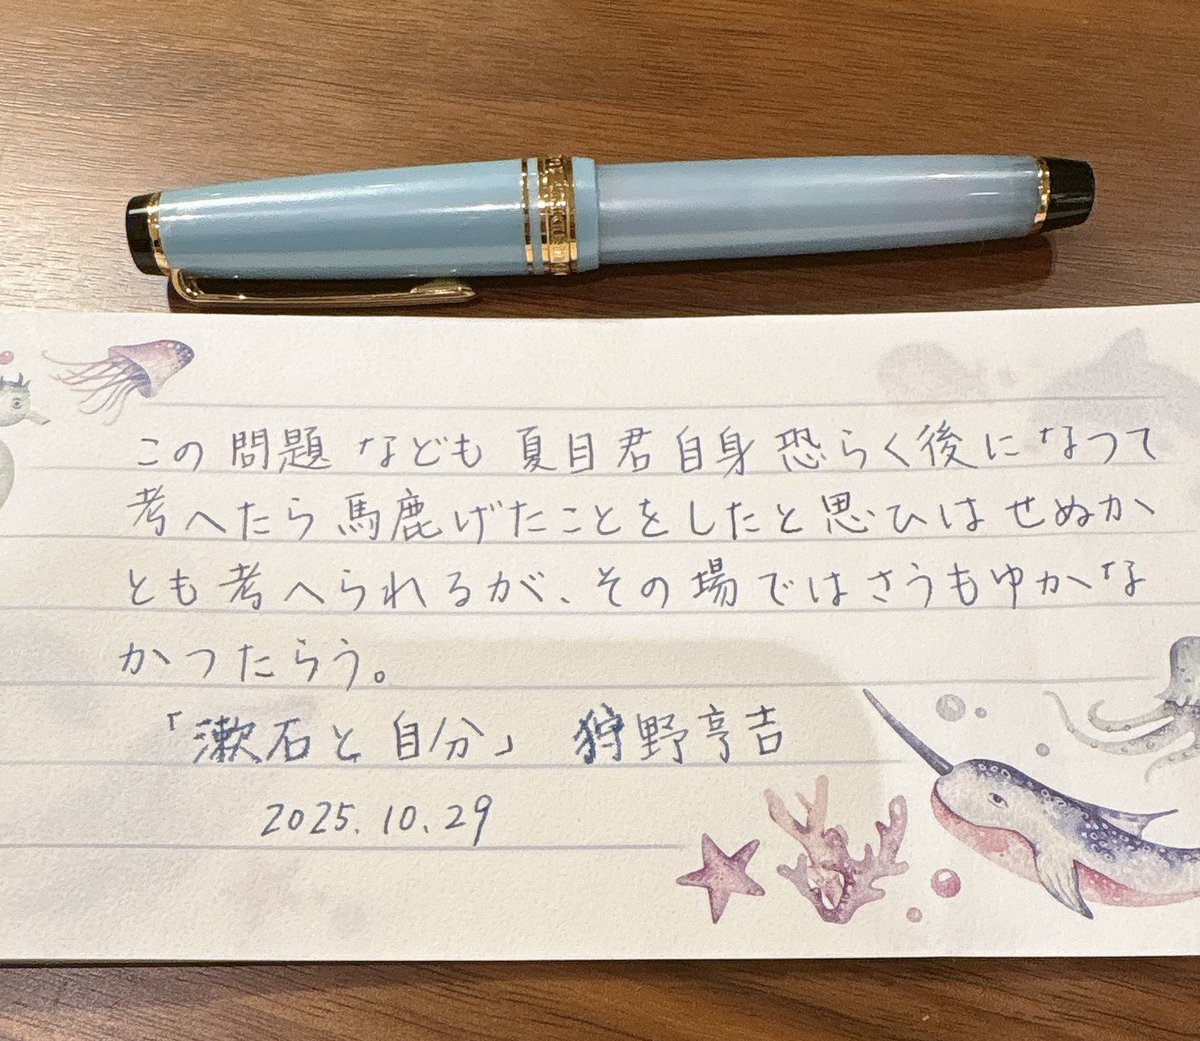 この問題なども夏目君自身恐らく後になつて
考へたら馬鹿げたことをしたと思ひはせぬか
とも考へられるが、その場ではさうもゆかな
かつたらう。
「漱石と自分」 狩野亨吉
2025.10.29